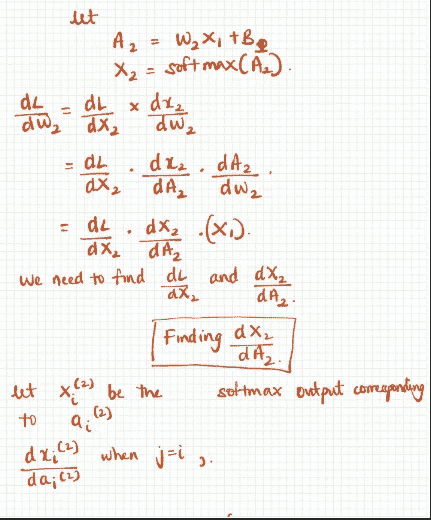 let
A₂ = W₂X₁ + B₂
X₂ = softmax(A₂).
dL/dW₂ = dL/dX₂ × dx₂/dw₂
= dL/dX₂ . dx₂/dA₂ . dA₂/dw₂ .
= dL/dX₂ . dX₂/dA₂ .(X₁).
We need to find dL/dX₂ and dX₂/dA₂.
Finding dX₂/dA₂.
let xᵢ⁽²⁾ be the softmax output corresponding
to aᵢ⁽²⁾
dxᵢ⁽²⁾/daⱼ⁽²⁾ when j=i ,